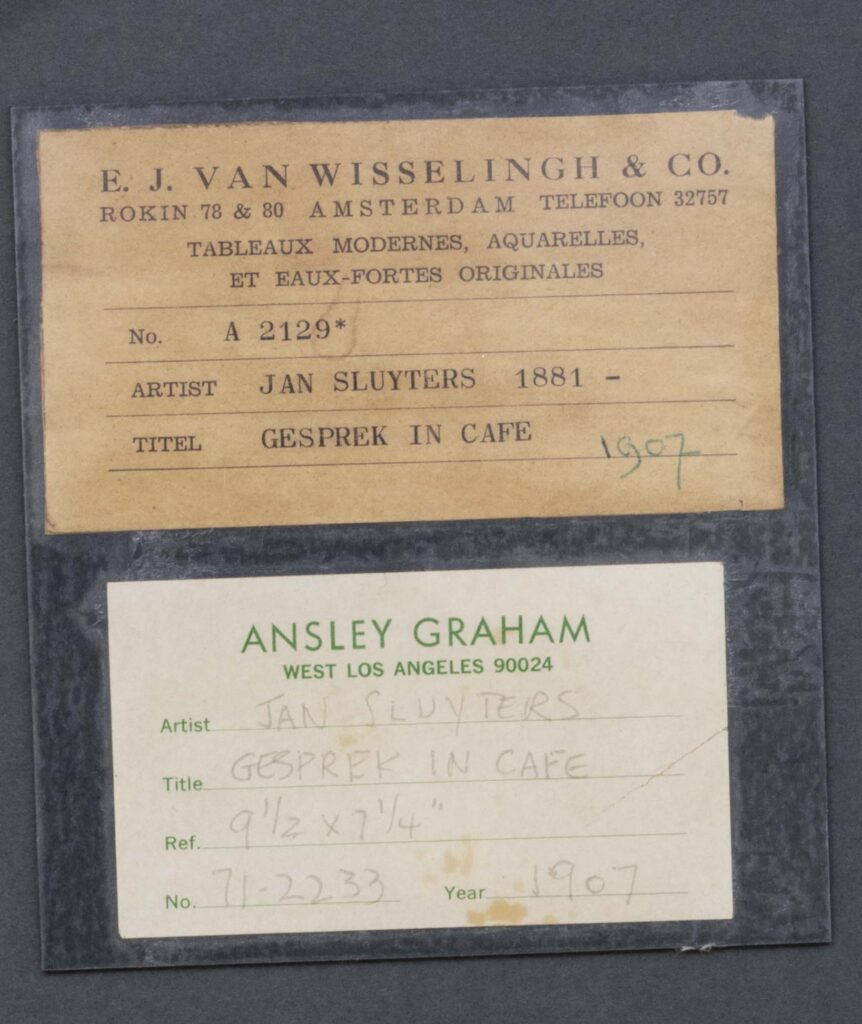 E. J. VAN WISSELINGH & CO.
ROKIN 78 & 80 AMSTERDAM TELEFOON 32757
TABLEAUX MODERNES, AQUARELLES,
ET EAUX-FORTES ORIGINALES
No. A 2129*
ARTIST JAN SLUYTERS 1881 –
TITEL GESPREK IN CAFE 1907
ANSLEY GRAHAM
WEST LOS ANGELES 90024
Artist JAN SLUYTERS
Title GESPREK IN CAFE
Ref. 9 1/2 x 7 1/4"
No. 71-2233 Year 1907